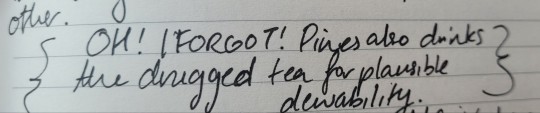 other.
{ OH! I FORGOT! Pines also drinks }
the drugged tea for plausible
deniability.